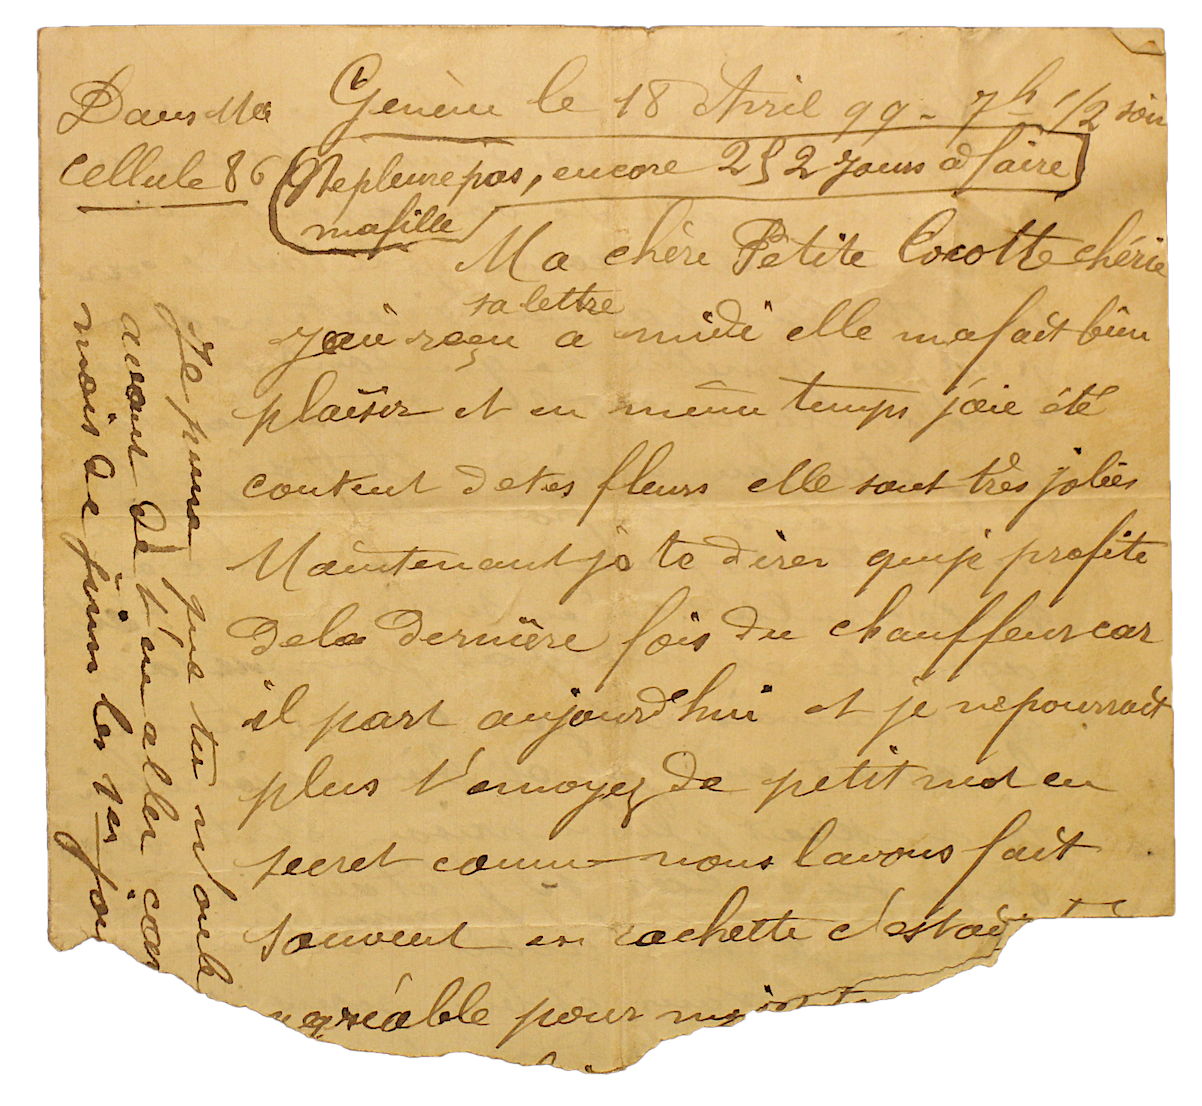 Dans Ma
cellule 86
Genève le 18 Avril 99 - 7h 1/2 soir
Ne pleure pas, encore 252 jours à faire
ma fille
Ma chère Petite Cocotte chérie
sa lettre
j'ai reçu a midi elle ma fait bien
plaisir et en même temps j'aie été
content de tes fleurs elle sont très jolies
Maintenant je te direr que je profite
de la dernière fois du chauffeur car
il part aujourd'hui et je ne pourrait
plus t'envoyez de petit mot en
secret comme nous lavons fait
souvent en cachette c'estai
agréable pour moi
Je pense que tu m'oubl
avant de t'en aller car
mois de juin les 1er jou